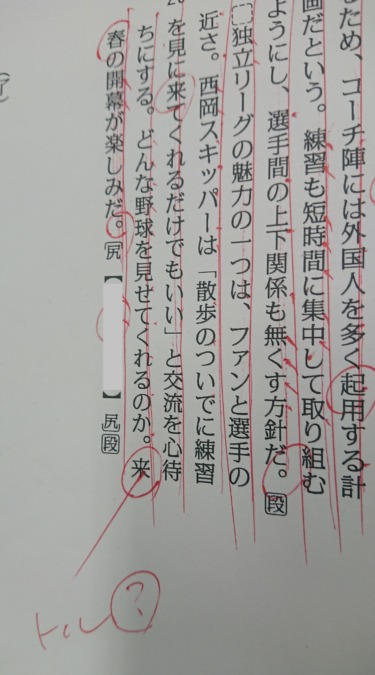 ため、コーチ陣には外国人を多く起用する計
画だという。練習も短時間に集中して取り組む
ようにし、選手間の上下関係も無くす方針だ。段
独立リーグの魅力の一つは、ファンと選手の
近さ。西岡スキッパーは「散歩のついでに練習
を見に来てくれるだけでもいい」と交流を心待
ちにする。どんな野球を見せてくれるのか。来
春の開幕が楽しみだ。尻【】尻段
トル?